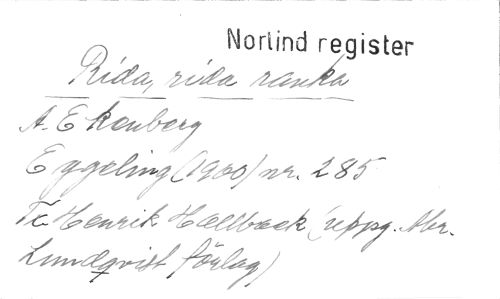 Norlind register
Rida, rida ranka
A. Ekenberg
Eggeling (1900) nr. 285
Tx. Henrik Hallbeck (uppg. Abr.
Lundqvist förlag)